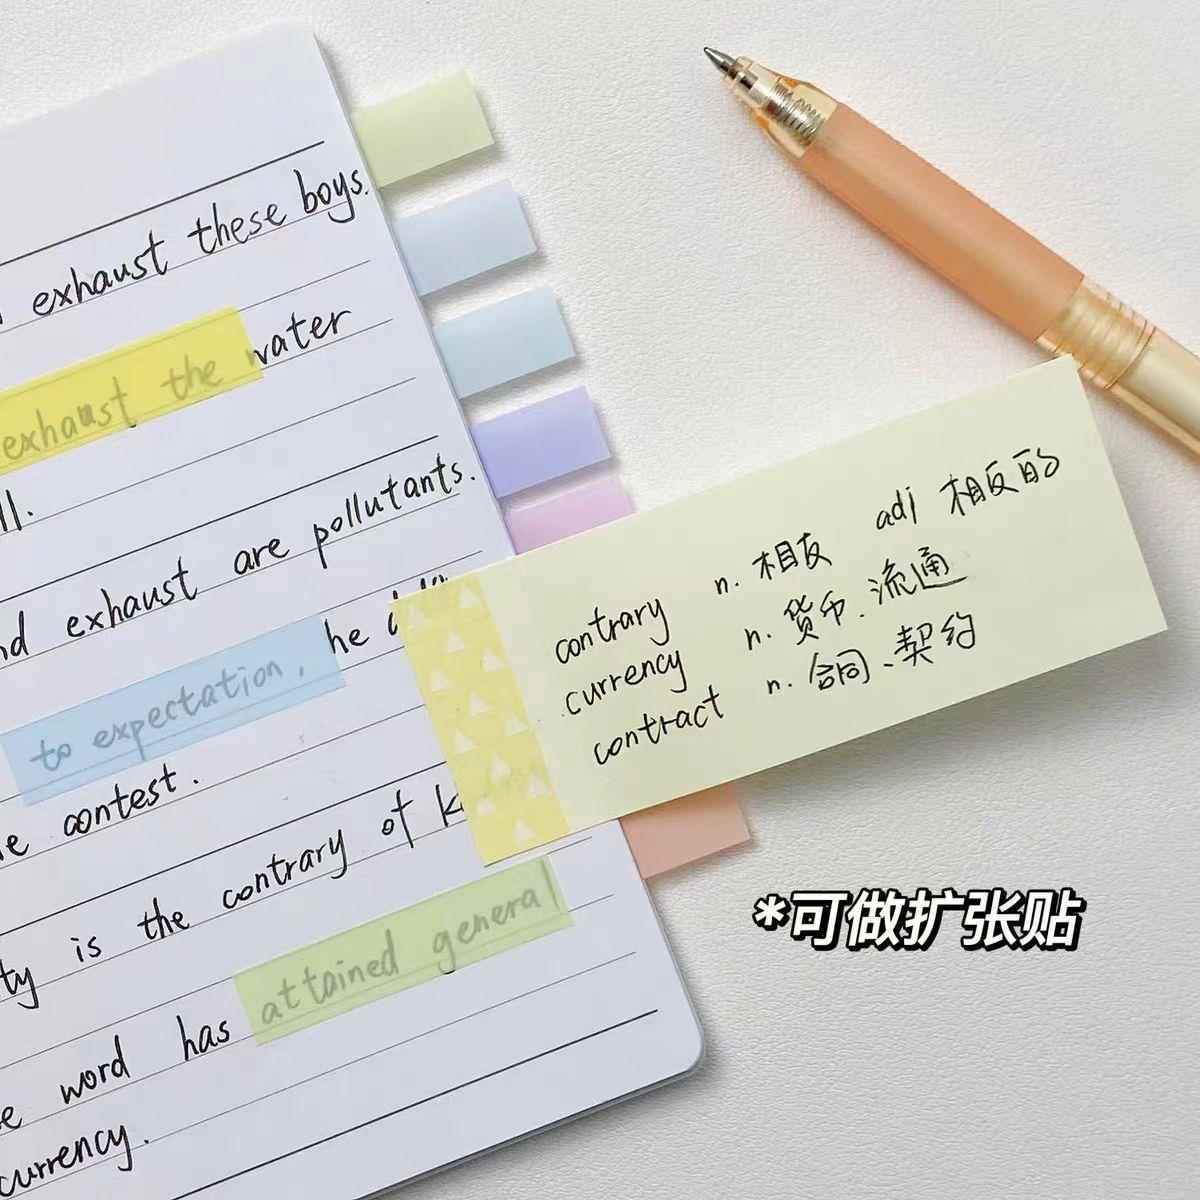 exhaust these boys.
exhaust the water
ll.
nd exhaust are pollutants.
to expectation, he
e contest.
ty is the contrary of K
word has attained general
currency.
contrary n. 相反 adj 相反的
currency n. 货币、流通
contract n. 合同、契约
*可做扩张贴